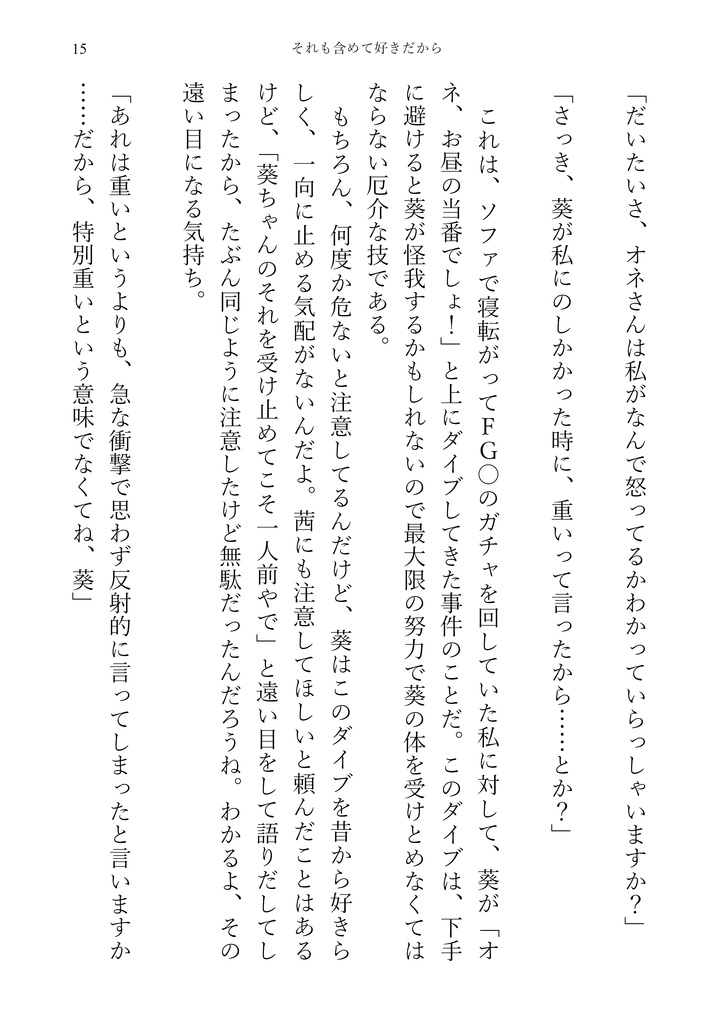 15
それも含めて好きだから
「だいたいさ、オネさんは私がなんで怒ってるかわかっていらっしゃいますか？」
「さっき、葵が私にのしかかった時に、重いって言ったから……とか？」
これは、ソファで寝転がってＦＧ〇のガチャを回していた私に対して、葵が「オ
ネ、お昼の当番でしょ！」と上にダイブしてきた事件のことだ。このダイブは、下手
に避けると葵が怪我するかもしれないので最大限の努力で葵の体を受けとめなくては
ならない厄介な技である。
もちろん、何度か危ないと注意してるんだけど、葵はこのダイブを昔から好きら
しく、一向に止める気配がないんだよ。茜にも注意してほしいと頼んだことはある
けど、「葵ちゃんのそれを受け止めてこそ一人前やで」と遠い目をして語りだしてし
まったから、たぶん同じように注意したけど無駄だったんだろうね。わかるよ、その
遠い目になる気持ち。
「あれは重いというよりも、急な衝撃で思わず反射的に言ってしまったと言いますか
……だから、特別重いという意味でなくてね、葵」